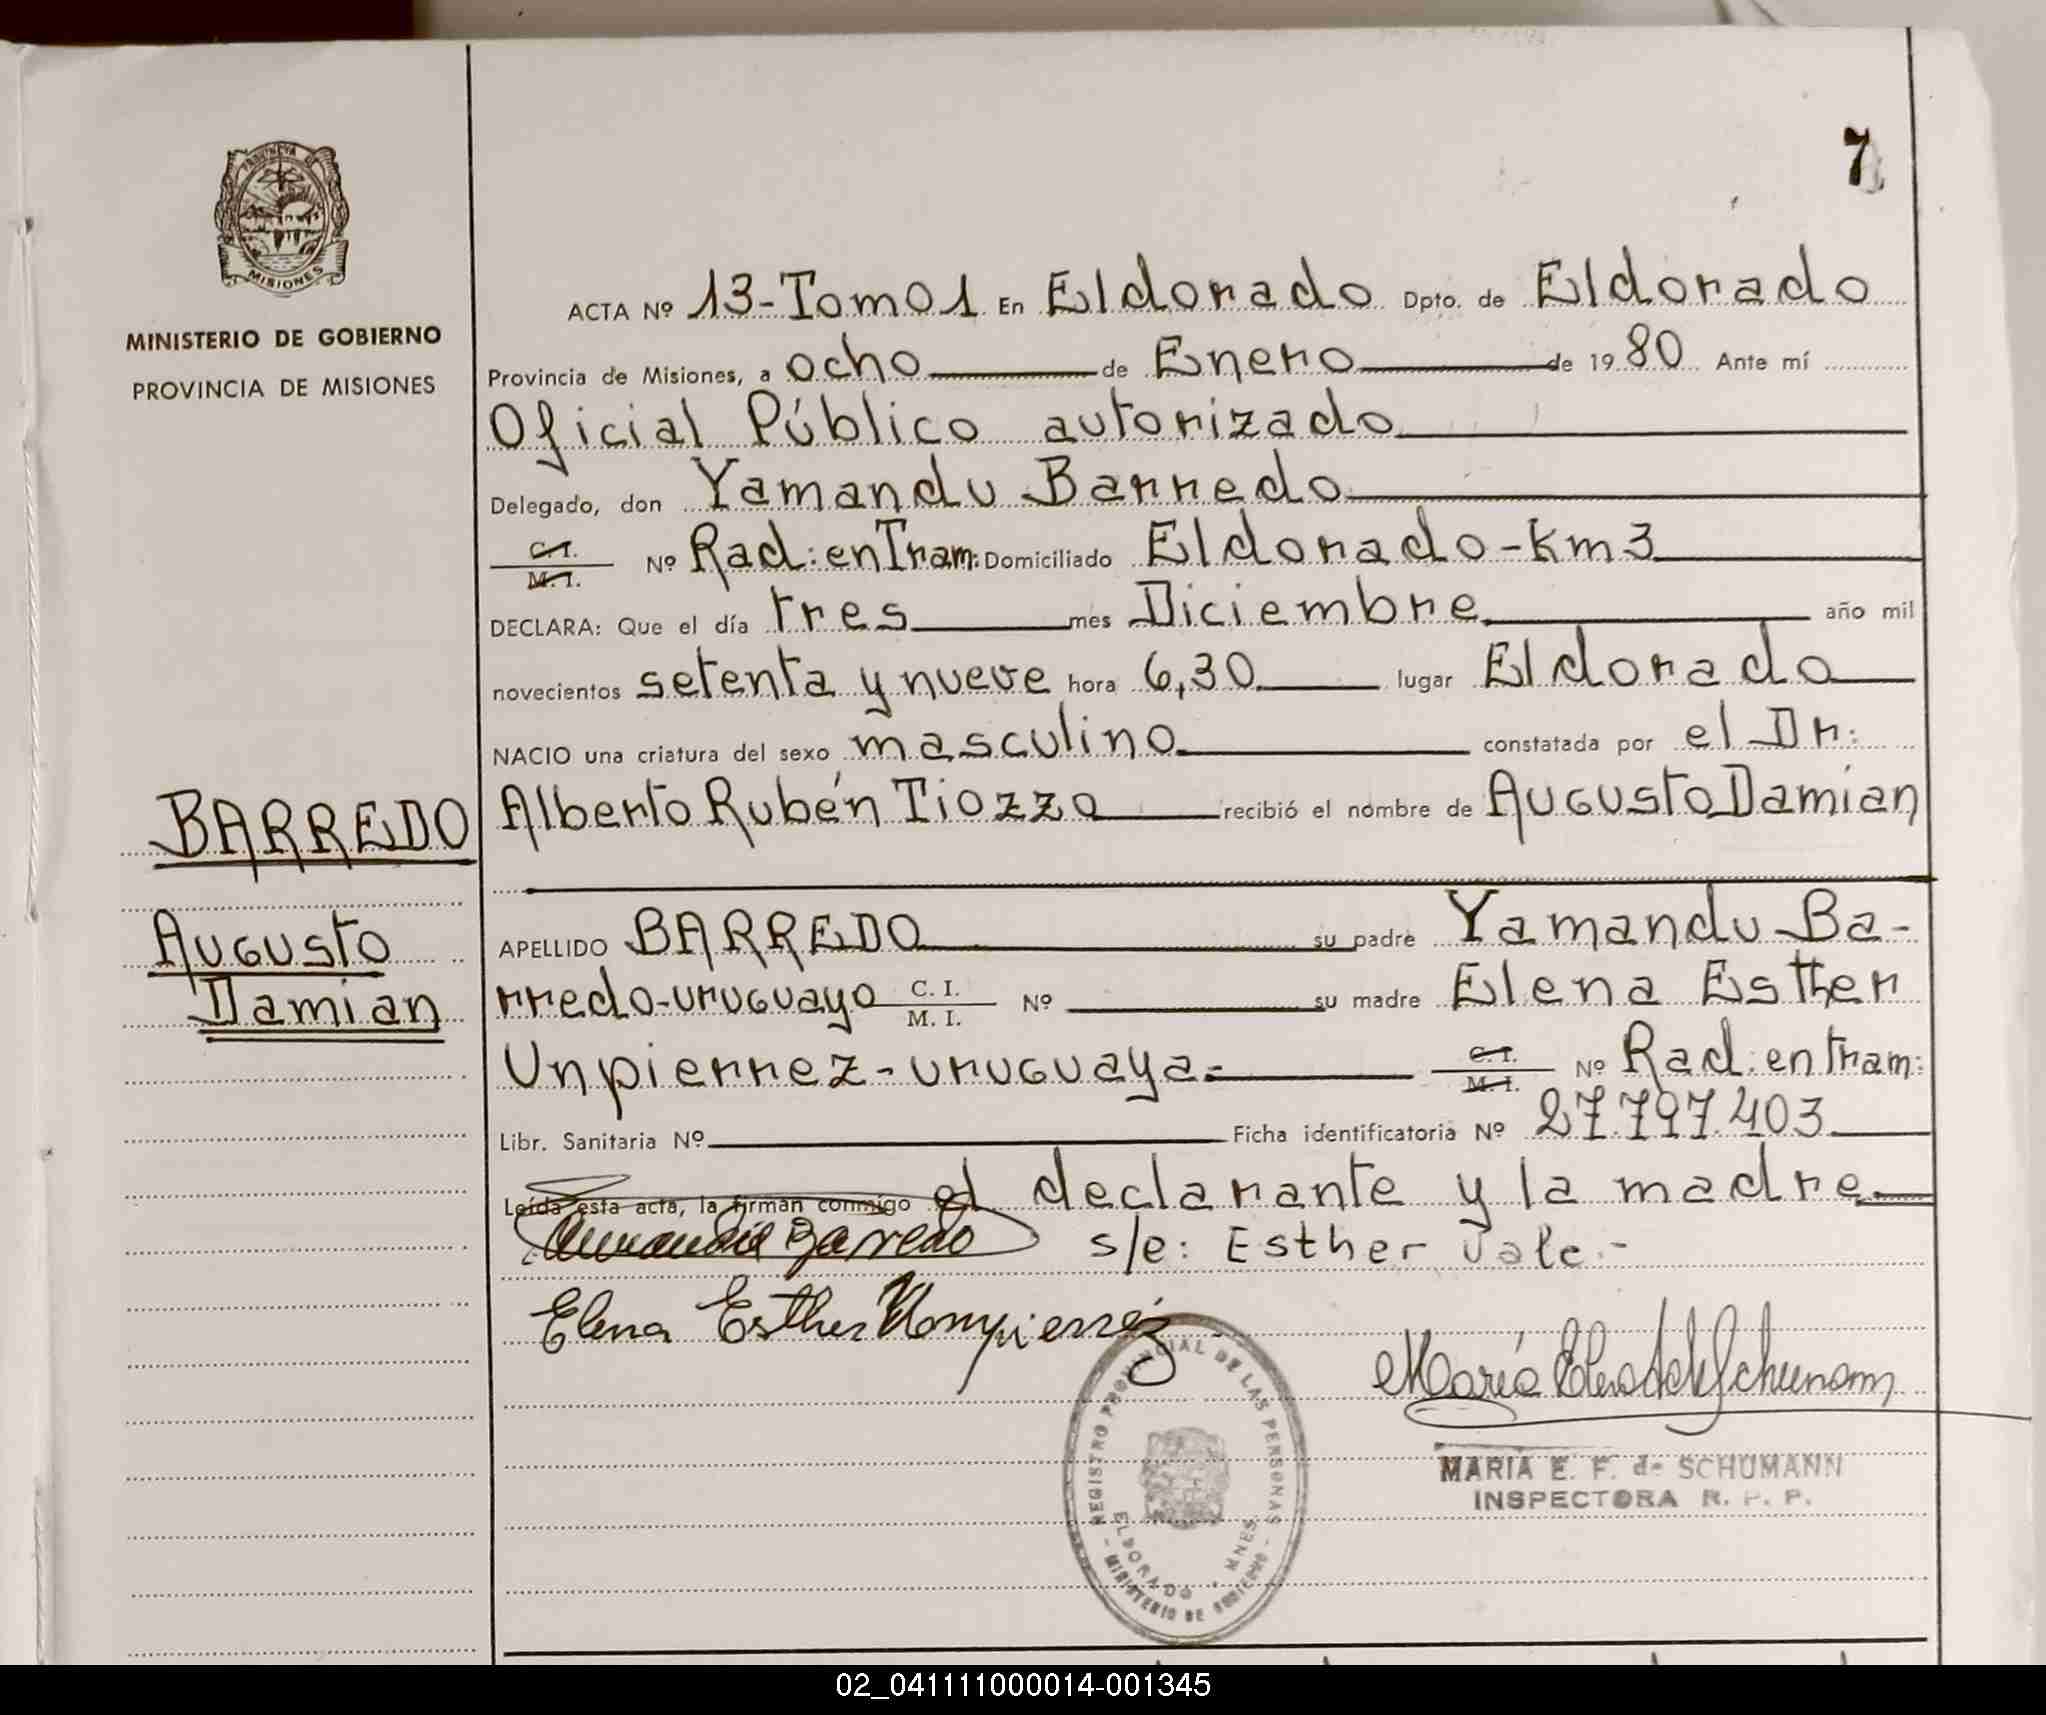 7
PROVINCIA DE
MISIONES
MINISTERIO DE GOBIERNO
PROVINCIA DE MISIONES
ACTA Nº 13-Tomo 1 En Eldorado Dpto. de Eldorado
Provincia de Misiones, a ocho de Enero de 1980 Ante mí
Oficial Público autorizado
Delegado, don Yamandu Barredo
C.I. M.I. Nº Rad: en Tram: Domiciliado Eldorado-Km3
DECLARA: Que el día tres mes Diciembre año mil
novecientos setenta y nueve hora 6,30 lugar Eldorado
NACIO una criatura del sexo masculino constatada por el Dr:
Alberto Rubén Tiozzo recibió el nombre de Augusto Damian
BARREDO
Augusto
Damian
APELLIDO BARREDO su padre Yamandu Ba-
rredo-uruguayo C. I. M. I. Nº su madre Elena Esther
Urpierrez-uruguaya= C.I. M.I. Nº Rad: en tram:
Libr. Sanitaria Nº Ficha identificatoria Nº 27.797.403
Leída esta acta, la firman conmigo el declarante y la madre
Barredo s/e: Esther Vale.-
Elena Esther
REGISTRO PROVINCIAL DE LAS PERSONAS
ELDORADO - MNES.
- MINISTERIO DE GOBIERNO -
MARIA E. F. de SCHUMANN
INSPECTORA R. P. P.
02_041111000014-001345